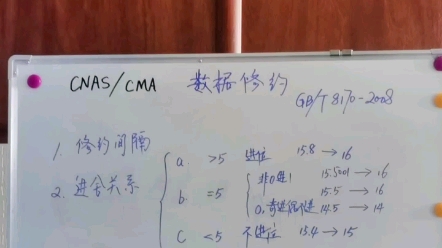 CNAS/CMA 数据修约
GB/T 8170-2008
1. 修约间隔
2. 进舍关系
a. >5 进位 15.8 → 16
b. =5
非0进1 15.5001 → 16
15.5 → 16
0. 奇进偶不进 14.5 → 14
c <5 不进位 15.4 → 15